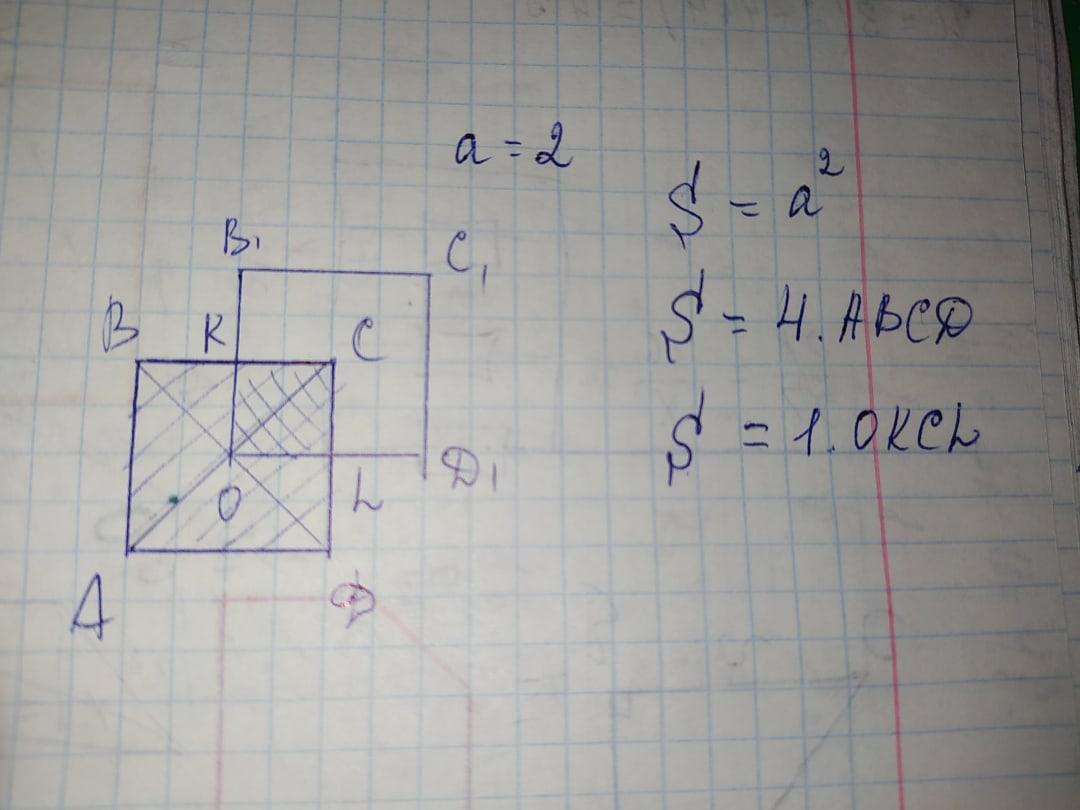 a = 2
S = a²
B₁
C₁
B K C
S = 4. ABCD
S = 1. OKCL
O L D₁
A D